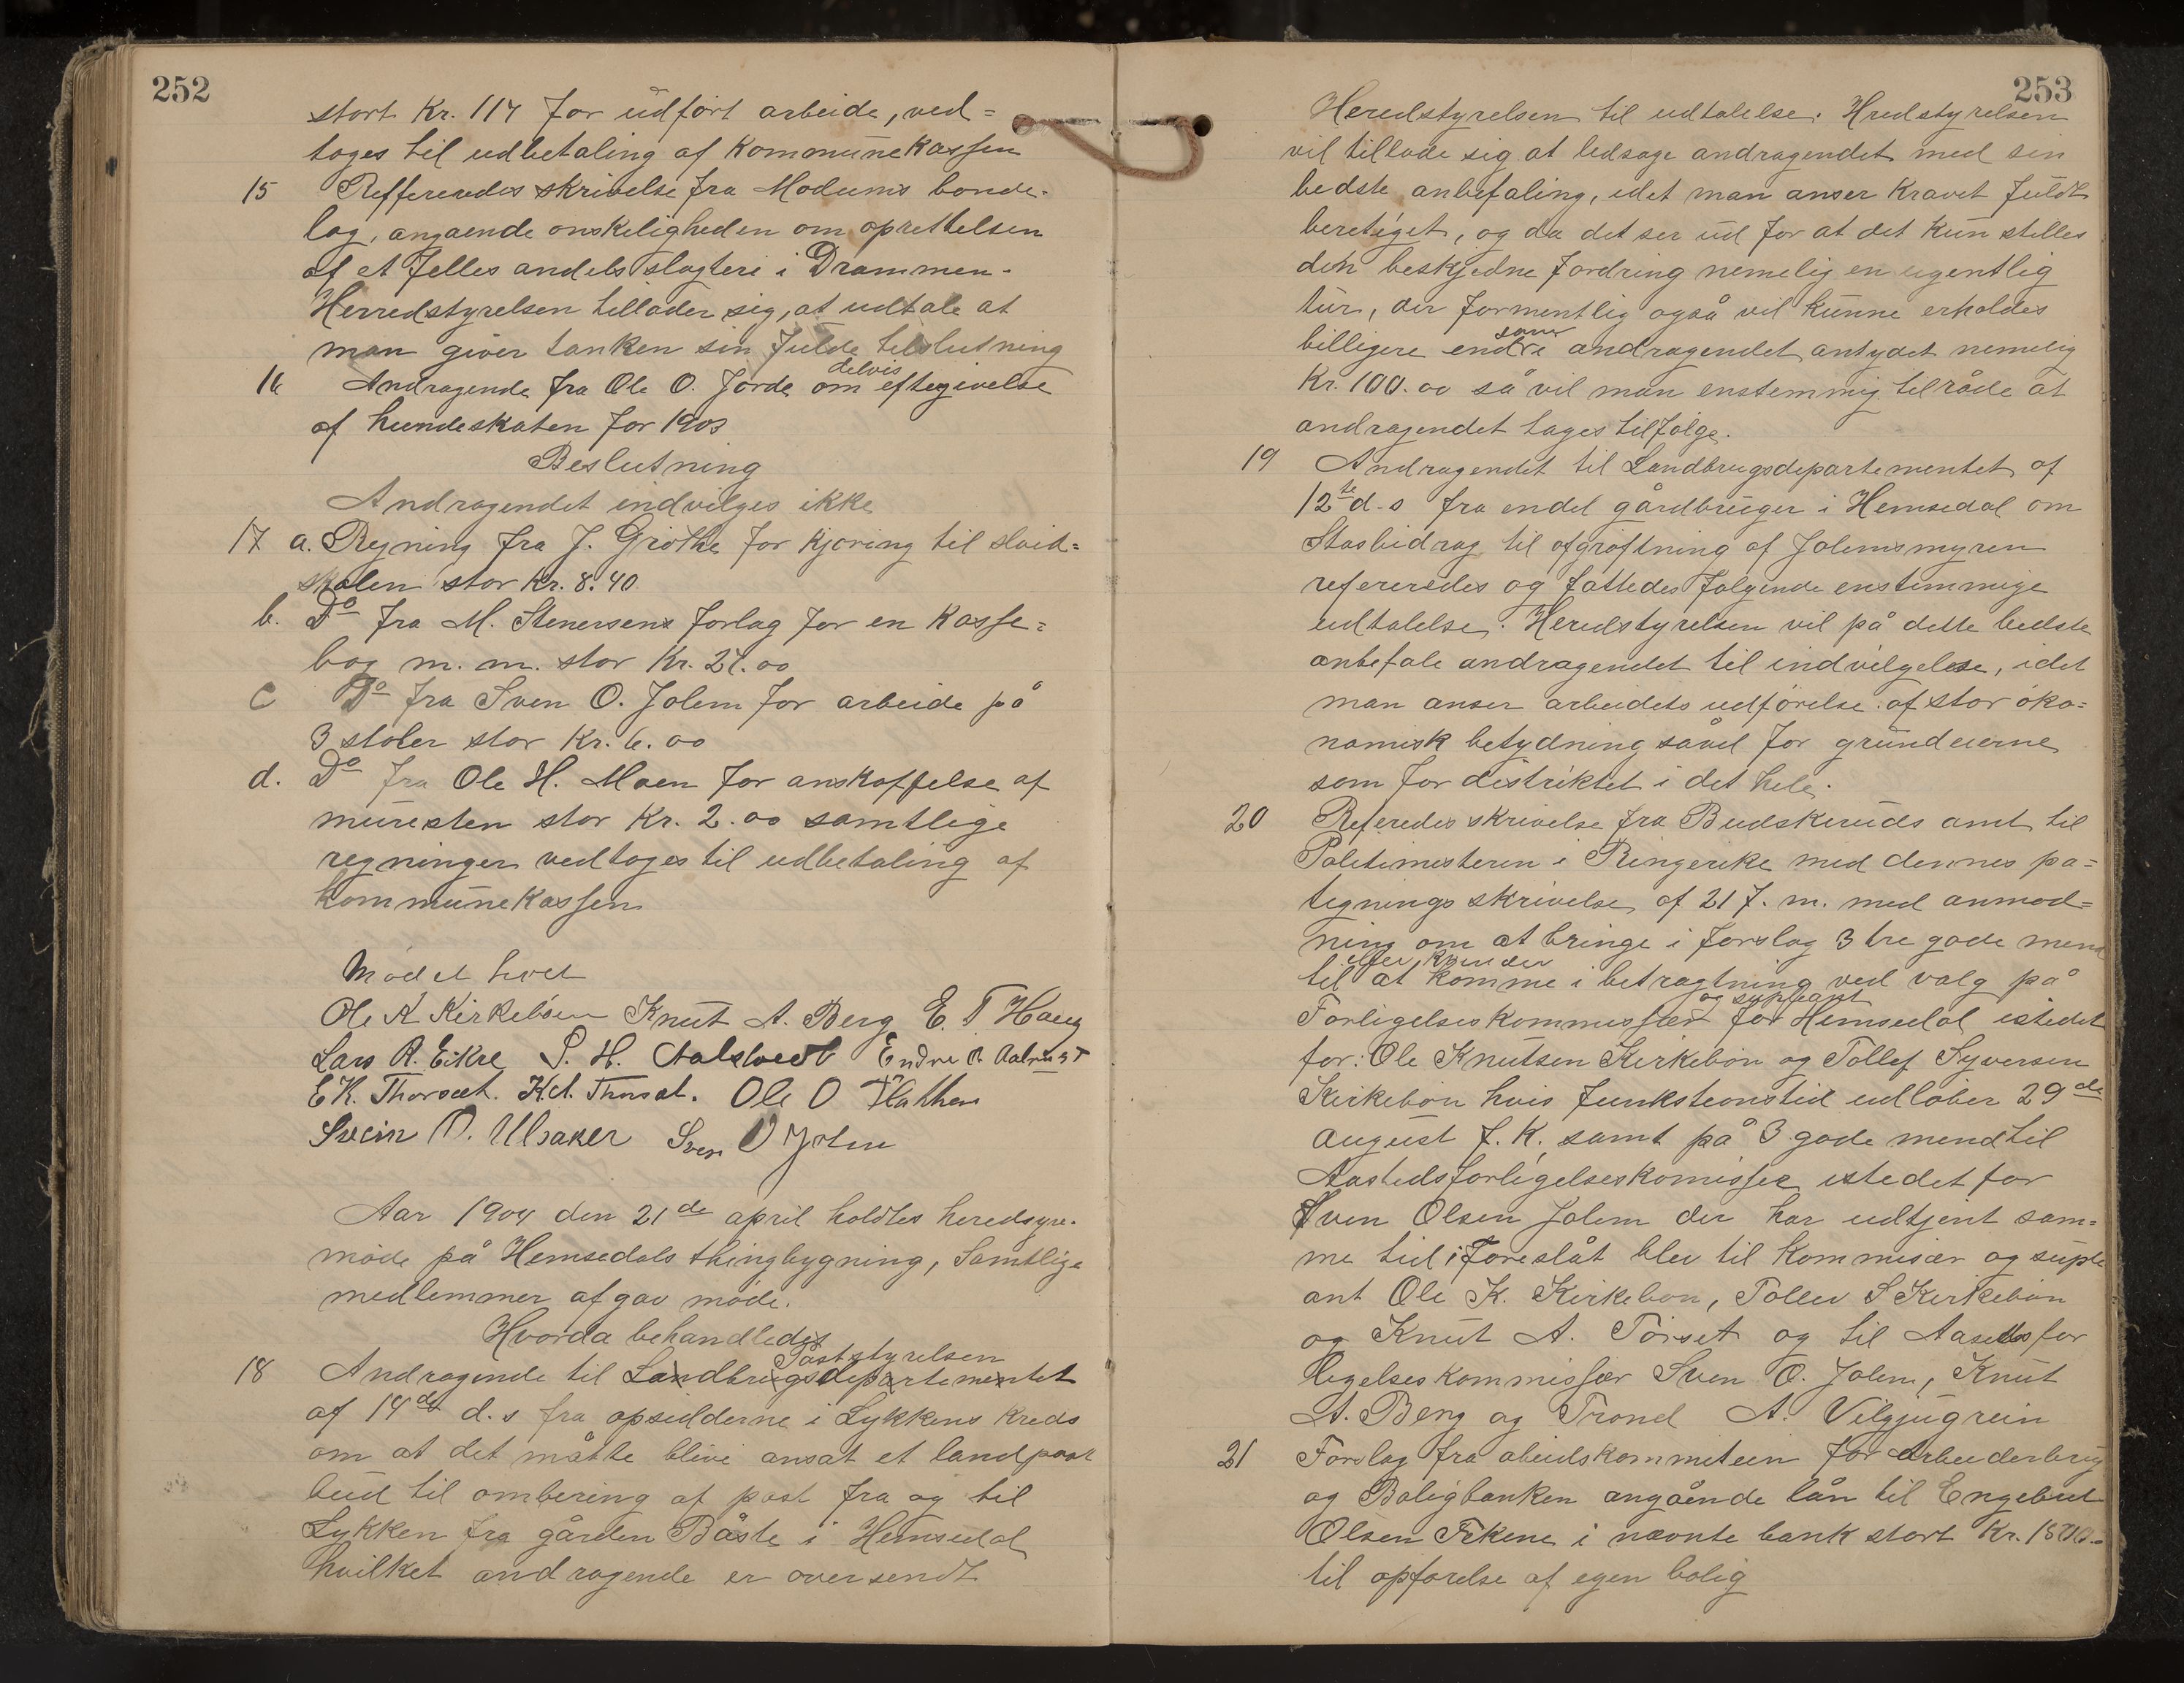 252
stort Kr. 114 for udført arbeide, ved=
tages til udbetaling af Kommunekassen
15 Reffereredes skrivelse fra Modums bonde-
lag, angaende onskeligheden om oprettelsen
af et felles andelsslagteri i Drammen.
Herredstyrelsen tillader sig, at udtale at
man giver tanken sin fulde tilslutning
delvis
16 Andragende fra Ole O. Jorde om eftegivelse
af hundeskaten for 1903
Beslutning
Andragendet indvilges ikke
17 a. Regning fra J. Grøthe for kjøring til sløid=
skolen stor Kr. 8.40
b. Do fra M. Stenersens forlag for en Kasse=
bog m. m. stor Kr. 24.00
c Do fra Sven O. Jolem for arbeide på
3 stoler stor Kr. 6.00
d. Do fra Ole H. Moen for anskaffelse af
muresten stor Kr. 2.00 samtlige
regninger vedtoges til udbetaling af
kommunekassen
Mødet hevet
Ole K Kirkebøen Knut A. Berg E. T Haug
Lars R. Eikre P. H. Aalstveit Endre O. Aalrust
E K. Thorset. K.A. Thorset. Ole O Flathen
Svein O. Ulsaker Sven O Jolm
Aar 1904 den 21de april holdtes heredsyre-
møde på Hemsedals thingbygning, Samtlige
medlemmer afgav møde.
Hvorda behandledes
Poststyrelsen
18 Andragende til Landbrugsdepartementet
af 14de d.s fra opsidderne i Lykkens Kreds
om at det måtte blive ansat et landpost
bud til ombering af post fra og til
Lykken fra gården Båste i Hemsedal
hvilket andragende er oversendt
253
Heredstyrelsen til udtalelse. Hredstyrelsen
vil tillade sig at ledsage andragendet med sin
bedste anbefaling, idet man anser Kravet fuldt
beretiget, og da det ser ud for at det kun stilles
den beskjedne fordring nemelig en ugentlig
tur, der formentlig også vil kunne erholdes
som
billigere end i andragendet antydet nemelig
Kr. 100.00 så vil man enstemmig tilråde at
andragendet tages tilfølge.
19 Andragendet til Landbrugsdepartementet af
12te d.s fra endel gårdbruger i Hemsedal om
Stasbidrag til afgrøftning af Jolemsmyren
refereredes og fattedes følgende enstemmige
udtalelse. Heredstyrelsen vil på dette bedste
anbefale andragendet til indvilgelese, idet
man anser arbeidets udførelse af stor øko=
nomisk betydning såvel for grundeierne
som for distriktet i det hele.
20 Referedes skrivelse fra Budskeruds amt til
Politimesteren i Ringerike med dennes pa=
tegningsskrivelse af 21 f. m. med anmod=
ning om at bringe i forslag 3 tre gode mend
eller kvinder
til at komme i betragtning ved valg på
og supleant
Forligelseskommissær for Hemsedal istedet
for: Ole Knutsen Kirkebøn og Tollef Syversen
Kirkebøn hvis funkstionstid udløber 29de
august f. K, samt på 3 gode mend til
Aastedsforligelseskomisser istedet for
Sven Olsen Jolem der har udtjent sam=
me tid i Foreslåt blev til Kommisær og suple
ant Ole K. Kirkebøn, Tollev S Kirkebøn
og Knut A. Tørset og til Aasedsfor
ligelseskommissær Sven O. Jolem, Knut
A. Berg og Trond A. Vilgjugrein
21 Forslag fra abeidskommiteen for arbeiderbrug
og Boligbanken angående lån til Engebret
Olsen Eikene i nævnte bank stort Kr. 1500.-
til opførelse af egen bolig